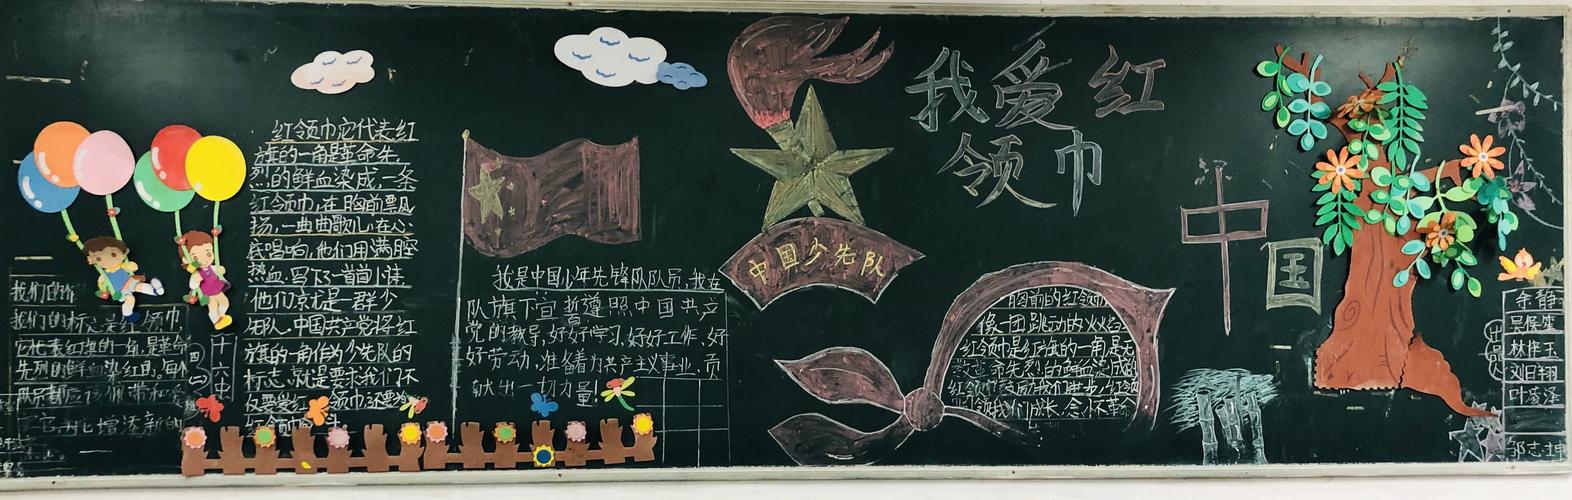 我们的标志是红领巾,
它代表红旗的一角,是革命
先烈的鲜血染红的,每个
队员都应该佩带和爱
它,为它增添新的
十六中
红领巾它代表红
旗的一角是革命先
烈的鲜血染成,一条
红领巾,在胸前飘
扬,一曲曲歌儿,在心
底唱响,他们用满腔
热血,写下一首首小诗
他们就是一群少
先队,中国共产党将红
旗的一角作为少先队的
标志,就是要求我们不
仅要爱红领巾还要为
红领巾
我是中国少年先锋队队员,我在
队旗下宣誓遵照中国共产
党的教导,好好学习,好好工作,好
好劳动,准备着为共产主义事业,贡
献出一切力量!
中国少先队
我爱红
领巾
胸前的红领巾
像一团跳动的火焰
红领巾是红旗的一角是无
革命先烈的鲜血染成的
红领巾
我们成长,念念不忘革命
中
国
余静
林梓玉
刘日翔
叶凌添
邹志坤